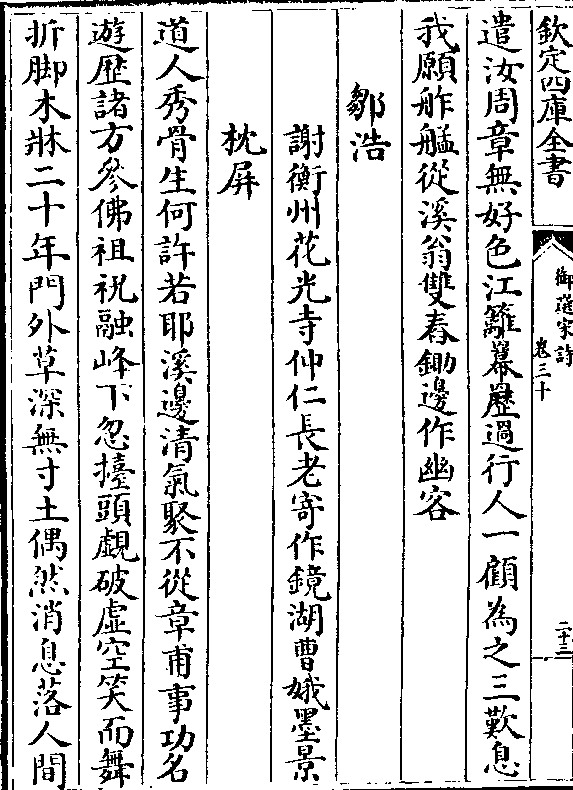 欽定四庫全書
御選宋詩
卷三十
二十三
遣汝周章無好色江籬羃歷過行人一顧為之三歎息
我願舴艋從溪翁雙舂鋤邊作幽客
鄒浩
謝衡州花光寺仲仁長老寄作鏡湖曹娥墨景
枕屏
道人秀骨生何許若耶溪邊清氣聚不從章甫事功名
遊歷諸方參佛祖祝融峰下忽擡頭覷破虛空笑而舞
折脚木牀二十年門外草深無寸土偶然消息落人間